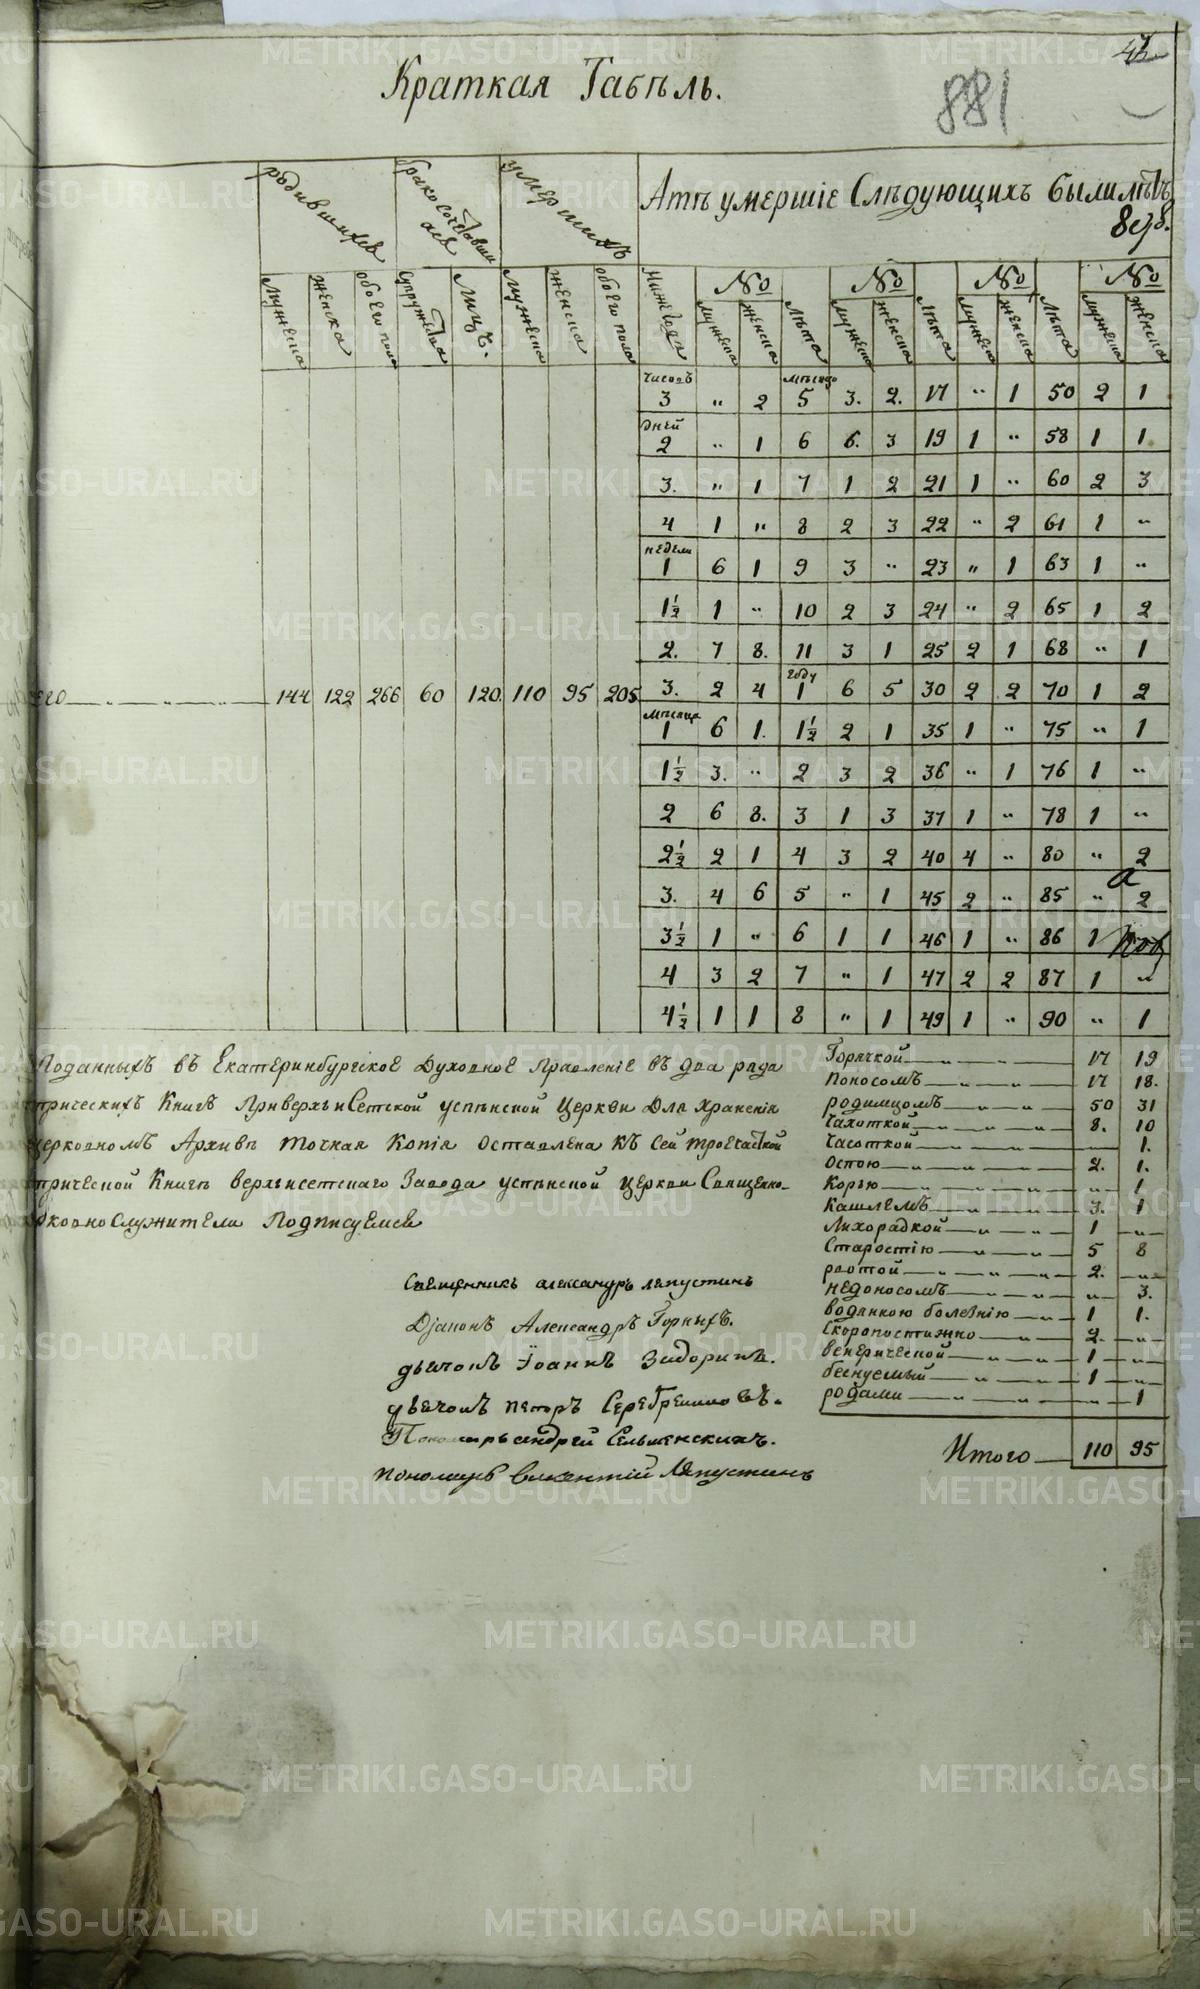 881
Краткая Табѣль.
родившихся
умершихъ
Атѣ умершіе Слѣдующихъ были лѣтъ
мужеска
женска
обоего пола
супружества
лицъ.
мужеска
женска
обоего пола
Ниже года
№
№
№
№
мужеска
женска
лѣта
мужеска
женска
лѣта
мужеска
женска
лѣта
мужеска
женска
часовъ мѣсяцо
3 " 2 5 3. 2. 17 " 1 50 2 1
дней
2 " 1 6 6. 3 19 1 " 58 1 1
3. " 1 7 1 2 21 1 " 60 2 3
4 1 " 8 2 3 22 " 2 61 1 "
недели
1 6 1 9 3 " 23 " 1 63 1 "
1½ 1 " 10 2 3 24 " 2 65 1 2
2. 7 8. 11 3 1 25 2 1 68 " 1
году
его 144 122 266 60 120. 110 95 205 3. 2 4 1 6 5 30 2 2 70 1 2
мѣсяца
1 6 1. 1½ 2 1 35 1 " 75 " 1
1½ 3. " 2 3 2 36 " 1 76 1 "
2 6 8. 3 1 3 37 1 " 78 1 "
2½ 2 1 4 3 2 40 4 " 80 " 2
3. 4 6 5 " 1 45 2 " 85 " 2
3½ 1 " 6 1 1 46 1 " 86 1
4 3 2 7 " 1 47 2 2 87 1 "
4½ 1 1 8 " 1 49 1 " 90 " 1
Поданныхъ въ Екатеринбургское Духовное Правленіе въ два ряда
трическихъ Книгъ Приверхъисетской успѣнской Церкви Для Храненія
церковномъ Архивѣ точная Копія оставлена Къ Сей троечастной
трической Книгѣ верхъисетскаго Завода успѣнской церкви Священно-
рковнослужители Подписуемся
Священникъ александръ ляпустинъ
Діаконъ Александръ Горныхъ.
дьячокъ Іоаннъ Задоринъ.
дьячокъ петръ Серебренниковъ.
Пономарь андрей Сельменскихъ.
пономарь викентій Ляпустинъ
Горячкой 17 19
поносомъ 17 18.
родимцомъ 50 31
Чахоткой 8. 10
Часоткой 1.
Оспою 2. 1.
Корью " 1
Кашлемъ 3. 1
Лихорадкой 1 "
Старостію 5 8
рвотой 2. "
недоносомъ " 3.
водянкою болезнію 1 1.
Скоропостижно 2. "
венерической 1 "
беснуемый 1 "
родами " 1
Итого 110 95
METRIKI.GASO-URAL.RU